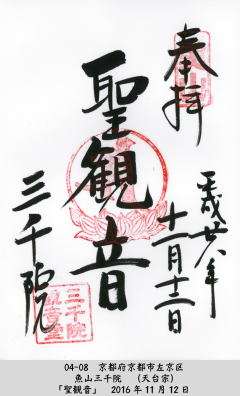 奉拝
平成廿八年
十一月十二日
聖観音
三千院
三千院
観音堂
04-08　京都府京都市左京区
魚山三千院　（天台宗）
「聖観音」　2016年11月12日